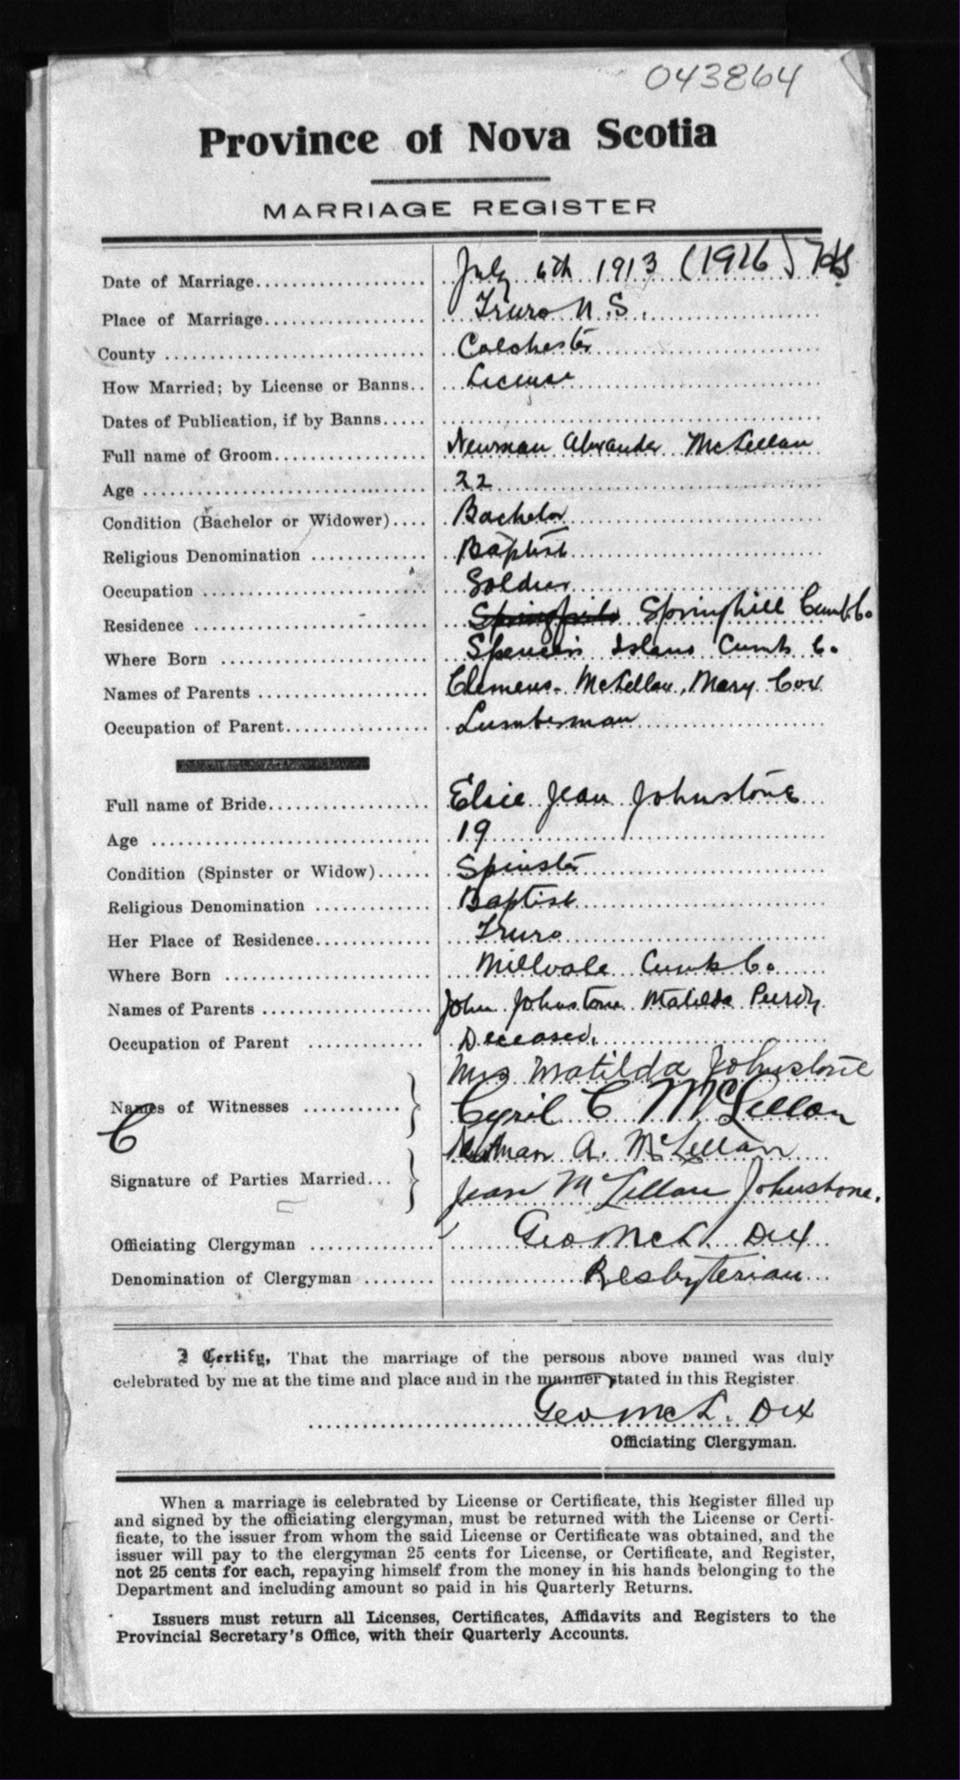 043864
Province of Nova Scotia
MARRIAGE REGISTER
Date of Marriage.................. July 6th 1913 (1916)
Place of Marriage.................. Truro N.S.
County ............................. Colchester
How Married; by License or Banns.. License
Dates of Publication, if by Banns.....
Full name of Groom................. Newman Alexander McLellan
Age ................................ 22
Condition (Bachelor or Widower).... Bachelor
Religious Denomination ............. Baptist
Occupation ......................... Soldier
Residence .......................... Springhill Cumb. Co.
Where Born ........................ Spencer's Island Cumb Co.
Names of Parents ................... Clemens McLellan, Mary Cox
Occupation of Parent................ Lumberman
Full name of Bride.................. Elsie Jean Johnstone
Age ................................ 19
Condition (Spinster or Widow)...... Spinster
Religious Denomination ............. Baptist
Her Place of Residence.............. Truro
Where Born ......................... Millvale Cumb Co.
Names of Parents ................... John Johnstone Matilda Purdy
Occupation of Parent ............... Deceased.
Mrs Matilda Johnstone
Names of Witnesses ............ } Cyril C McLellan
C
Newman A. McLellan
Signature of Parties Married... } Jean McLellan Johnstone.
Officiating Clergyman .............. Geo McL. Dix
Denomination of Clergyman ........ Presbyterian
I Certify, That the marriage of the persons above named was duly
celebrated by me at the time and place and in the manner stated in this Register
Geo McL. Dix
Officiating Clergyman.
When a marriage is celebrated by License or Certificate, this Register filled up
and signed by the officiating clergyman, must be returned with the License or Certi-
ficate, to the issuer from whom the said License or Certificate was obtained, and the
issuer will pay to the clergyman 25 cents for License, or Certificate, and Register,
not 25 cents for each, repaying himself from the money in his hands belonging to the
Department and including amount so paid in his Quarterly Returns.
Issuers must return all Licenses, Certificates, Affidavits and Registers to the
Provincial Secretary's Office, with their Quarterly Accounts.